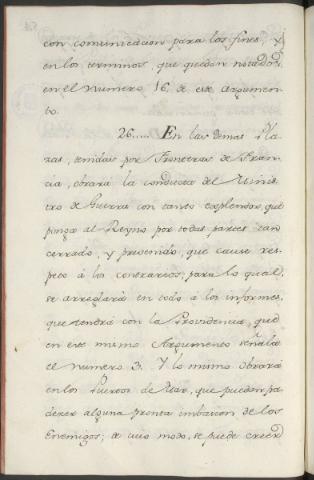 con comunicacion para los fines, y
en los terminos, que quedan notados,
en el numero 16. de este Argumen-
to.
26..... En las demas Pla-
zas, tenidas por Fronteras de Fran-
cia, obrará la conducta del Minis-
tro de Guerra con tanto explendor, que
ponga al Reyno por todas partes tan
cerrado, y prevenido, que cause res-
peto á los contrarios; para lo qual,
se arreglará en todo a los informes,
que tendrá con la Providencia, que
en este mismo Argumento señala
el numero 3. Y lo mismo obrará
en los Puertos de Mar, que puedan pa-
decer alguna pronta imbasion de los
Enemigos; de cuio modo, se puede creer